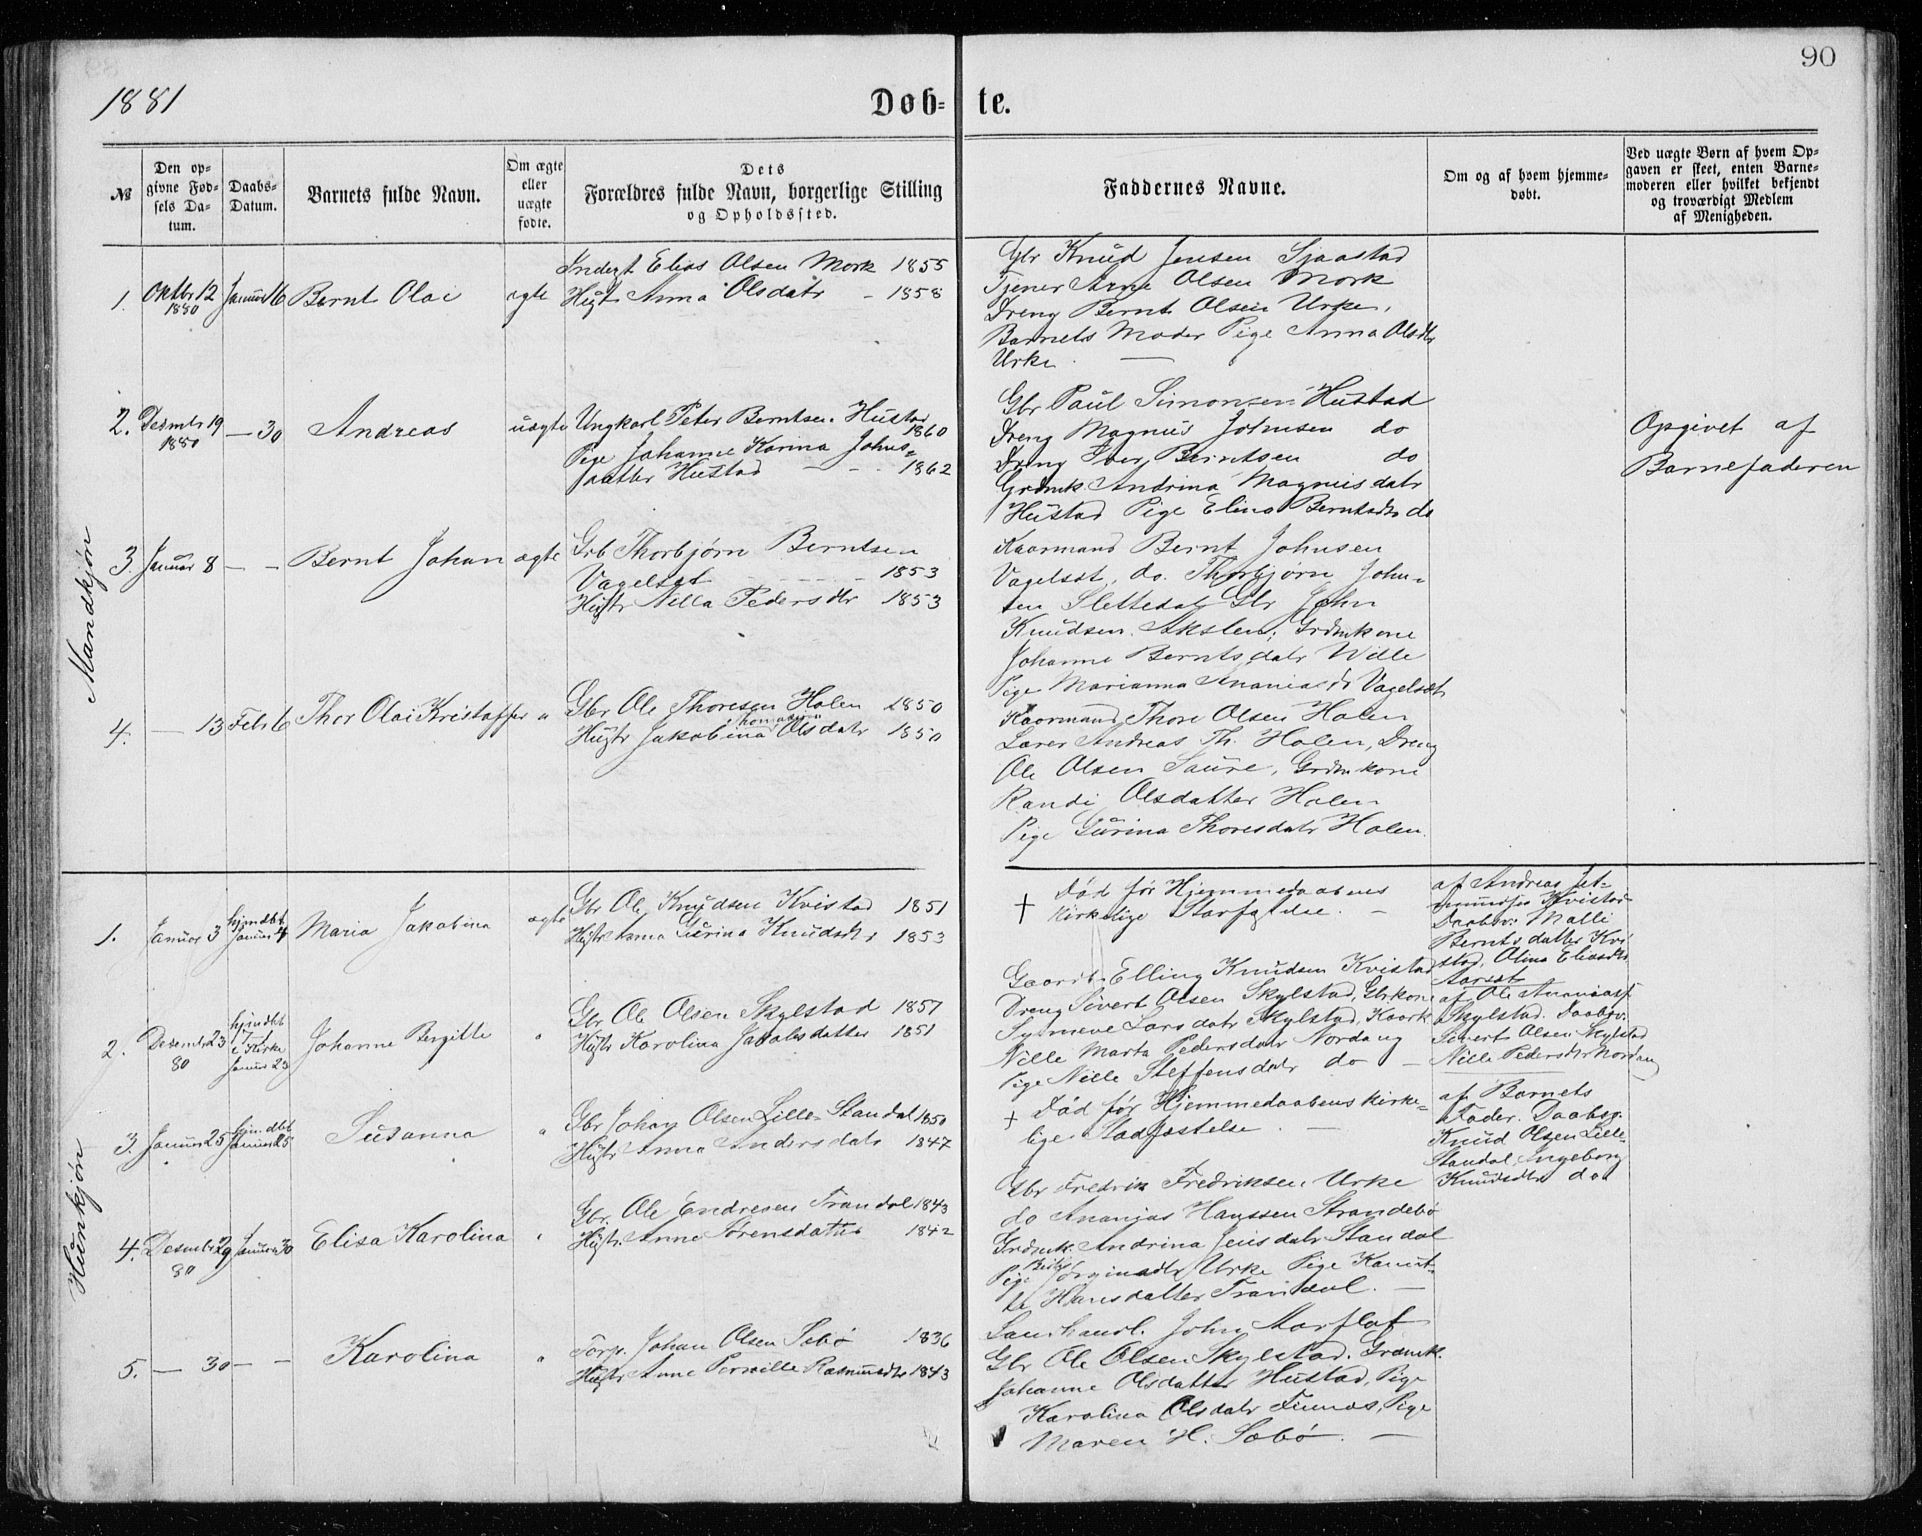 90
1881
Døb- te.
№
Den op-
givne Fød-
sels Da-
tum.
Daabs-
Datum.
Barnets fulde Navn.
Om ægte
eller
uægte
fødte.
Dets
Forældres fulde Navn, borgerlige Stilling
og Opholdssted.
Faddernes Navne.
Om og af hvem hjemme-
døbt.
Ved uægte Børn af hvem Op-
gaven er skeet, enten Barne-
moderen eller hvilket bekjendt
og troværdigt Medlem
af Menigheden.
Mandkjøn
1. Oktbr 12 1880 Januar 16 Bernt Olai ægte
Inderst Elias Olsen Mork 1855
Hustr Anna Olsdatr - 1858
Gbr Knud Jensen Sjaastad
Tjener Arne Olsen Mork
Dreng Bernt Olsen Urke,
Barnets Moder Pige Anna Olsdtr
Urke
2. Desembr 19 1880 — 30 Andreas uægte
Ungkarl Peter Berntsen Hustad
1860
Pige Johanne Karina Johns-
datter Hustad - - - 1862
Gbr Paul Simonsen Hustad
Dreng Magnus Johnsen do
Dreng Iver Berntsen do
Grdmk. Andrina Magnusdatr
Hustad Pige Elina Berntsdtr do
Opgivet af
Barnefaderen
3. Januar 8 — — Bernt Johan ægte
Grb Thorbjørn Berntsen
Vagelsæt - - - - - 1853
Hustr Nilla Pedersdtr 1853
Kaarmand Bernt Johnsen
Vagelsæt, do. Thorbjørn John-
sen Slettedal Gbr John
Knudsen Akslen, Grdmkone
Johanne Berntsdatr Wille
Pige Marianna Ananiasdr Vagelsæt
4. — 13 Febr 6 Thor Olai Kristoffer "
Gbr Ole Thoresen Holen 1850
Hustr Jakobina Thomasin Olsdatr 1850
Kaarmand Thore Olsen Holen
Lærer Andreas Th. Holen, Dreng
Ole Olsen Saure, Grdmkone
Randi Olsdatter Holen
Pige Gurina Thoresdatr Holen.
Kvindkjøn
1. Januar 3 hjmdbt Januar 4 Maria Jakobina ægte
Gbr Ole Knudsen Kvistad 1851
Hustr Anna Gurina Knudsdtr 1853
† Død før Hjemmedaabens
kirkelige Stadfæstelse. —
af Andreas
Kvistad
Daabsv: Malli
Berntsdatter Kvi-
stad, Olina Eliasdtr
Aarset
2. Desembr 23 80 hjmdbt 1/1 i Kirke Januar 23 Johanne Bergitte "
Gbr Ole Olsen Skylstad 1851
Hustr Karolina Jakobsdatter 1851
Gaardb Elling Knudsen Kvistad
Dreng Sivert Olsen Skylstad, Gbrkone
Synneve Larsdatr Skylstad, Kaark
Nille Marta Pedersdatr Nordang
Pige Nille Steffensdatr do —
af Ole Ananiass.
Skylstad. Daabsv.
Sivert Olsen Skylstad
Nille Pedersdtr Nordang
3. Januar 25 hjmdbt Januar 25 Susanna "
Gbr Johan Olsen Lille-Standal 1850
Hustr Anna Andersdatr 1847
† Død før Hjemmedaabens kirke-
lige Stadfæstelse. —
af Barnets
Fader. Daabsv.
Knud Olsen Lille-
Standal, Ingeborg
Knudsdtr do
4. Desembr 29 80 Januar 30 Elisa Karolina "
Gbr. Ole Endresen Trandal 1843
Hustr. Anne Sørensdatter 1842
Gbr Fredrik Fredriksen Urke
do Ananias Hanssen Strandebø
Grdmk. Andrina Jensdatr Standal
Pige Jørginadtr Urke Pige Kanut-
te Hansdatter Trandal. —
5. — 30 — — Karolina "
Torp. Johan Olsen Sebø 1836
Hustr Anne Pernille Rasmusdtr 1843
Landhandl. John Aarflot
Gbr Ole Olsen Skylstad. Grdmk.
Johanne Olsdatter Hustad, Pige
Karolina Olsdatr Finnes, Pige
Maren H. Sæbø. —